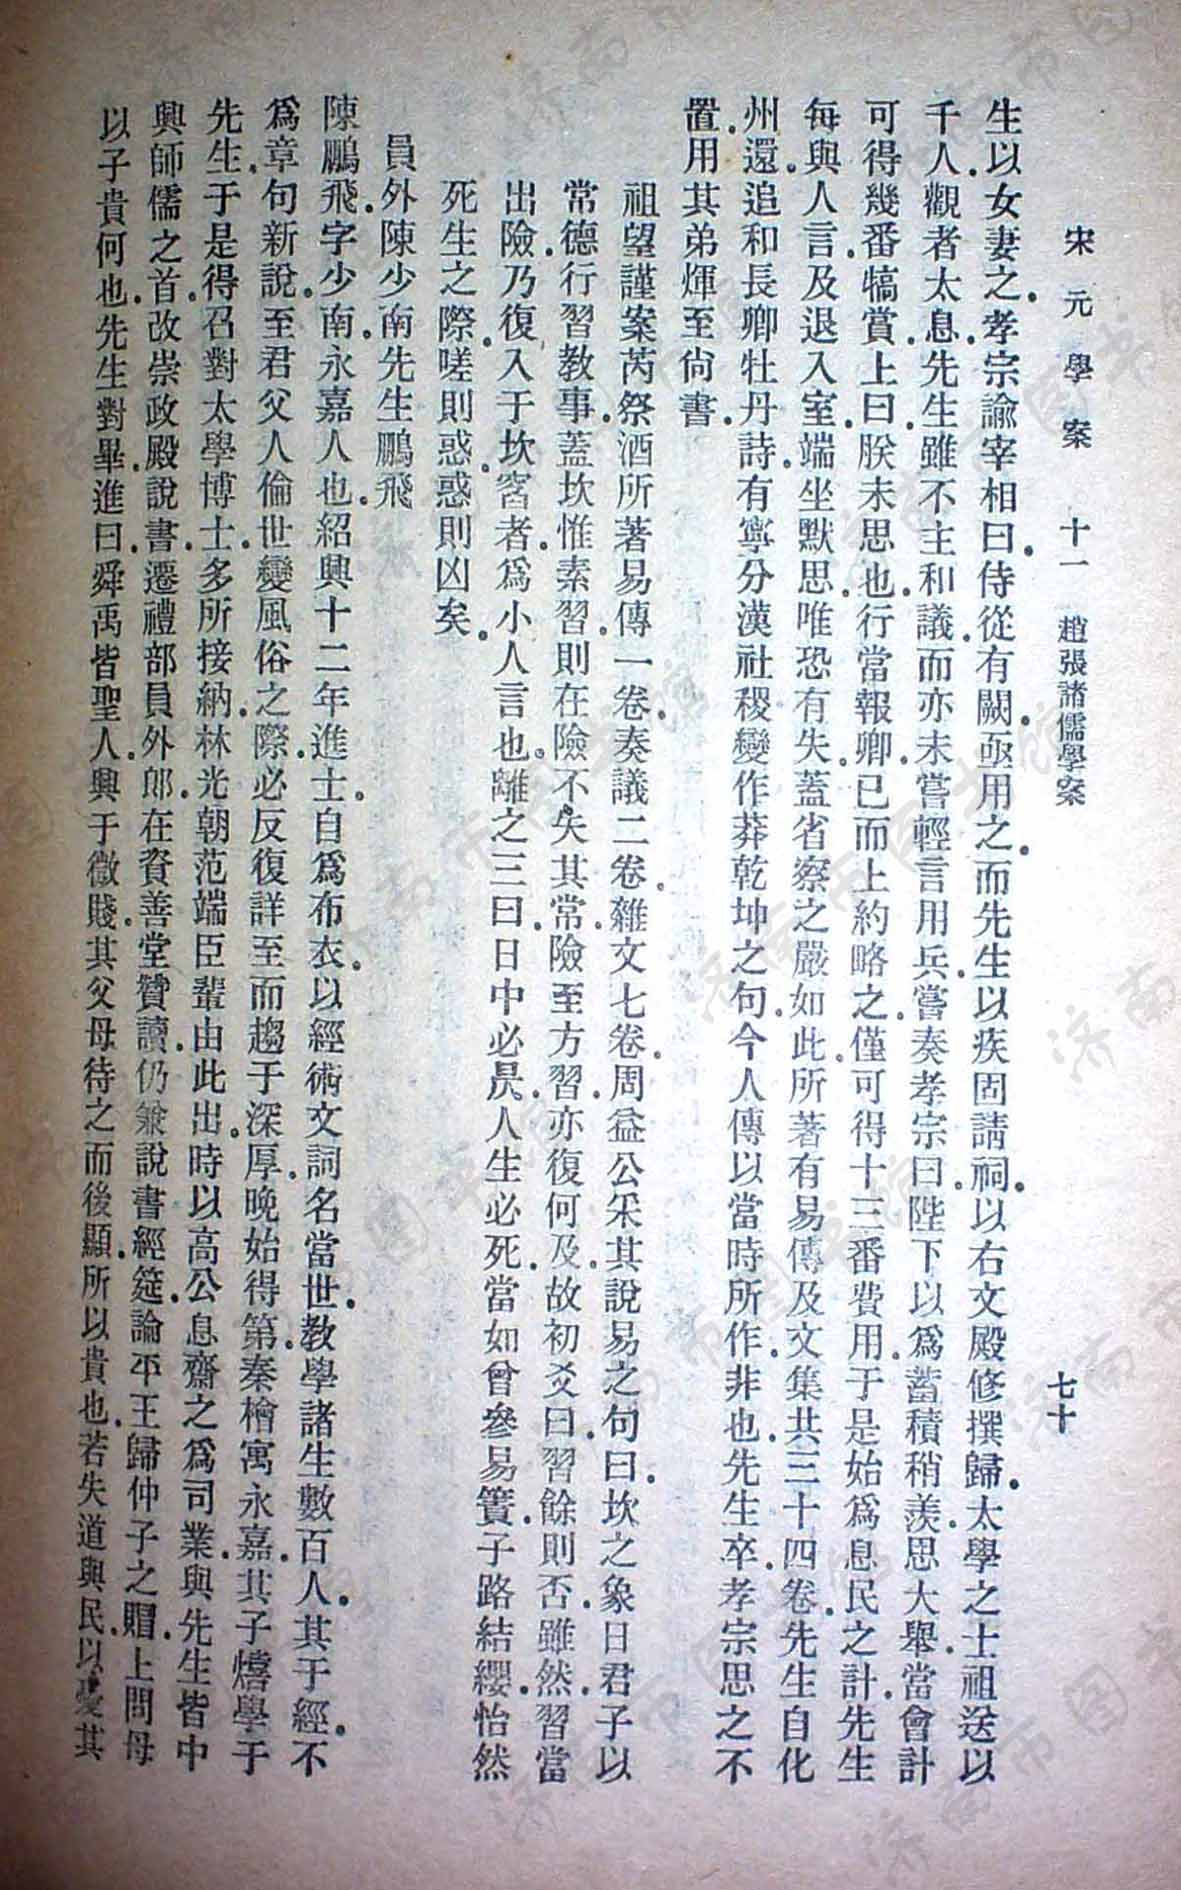 宋元學案 十一 趙張諸儒學案 七十
生以女妻之孝宗諭宰相曰侍從有闕亟用之而先生以疾固請祠以右文殿修撰歸太學之士祖送以
千人觀者太息先生雖不主和議而亦未嘗輕言用兵嘗奏孝宗曰陛下以爲蓄積稍羨思大舉當會計
可得幾番犒賞上曰朕未思也行當報卿已而上約略之僅可得十三番費用于是始爲息民之計先生
每與人言及退入室端坐默思唯恐有失蓋省察之嚴如此所著有易傳及文集共三十四卷先生自化
州還追和長卿牡丹詩有寧分漢社稷變作莽乾坤之句今人傳以當時所作非也先生卒孝宗思之不
置用其弟煇至尙書
祖望謹案芮祭酒所著易傳一卷奏議二卷雜文七卷周益公采其說易之句曰坎之象曰君子以
常德行習教事蓋坎惟素習則在險不失其常險至方習亦復何及故初爻曰習餘則否雖然習當
出險乃復入于坎窞者爲小人言也離之三曰日中必昃人生必死當如曾參易簀子路結纓怡然
死生之際嗟則惑惑則凶矣
員外陳少南先生鵬飛
陳鵬飛字少南永嘉人也紹興十二年進士自爲布衣以經術文詞名當世教學諸生數百人其于經不
爲章句新說至君父人倫世變風俗之際必反復詳至而趨于深厚晚始得第秦檜寓永嘉其子熺學于
先生于是得召對太學博士多所接納林光朝范端臣輩由此出時以高公息齋之爲司業與先生皆中
興師儒之首改崇政殿說書遷禮部員外郎在資善堂贊讀仍兼說書經筵論平王歸仲子之賵上問母
以子貴何也先生對畢進曰舜禹皆聖人興于微賤其父母待之而後顯所以貴也若失道與民以憂其